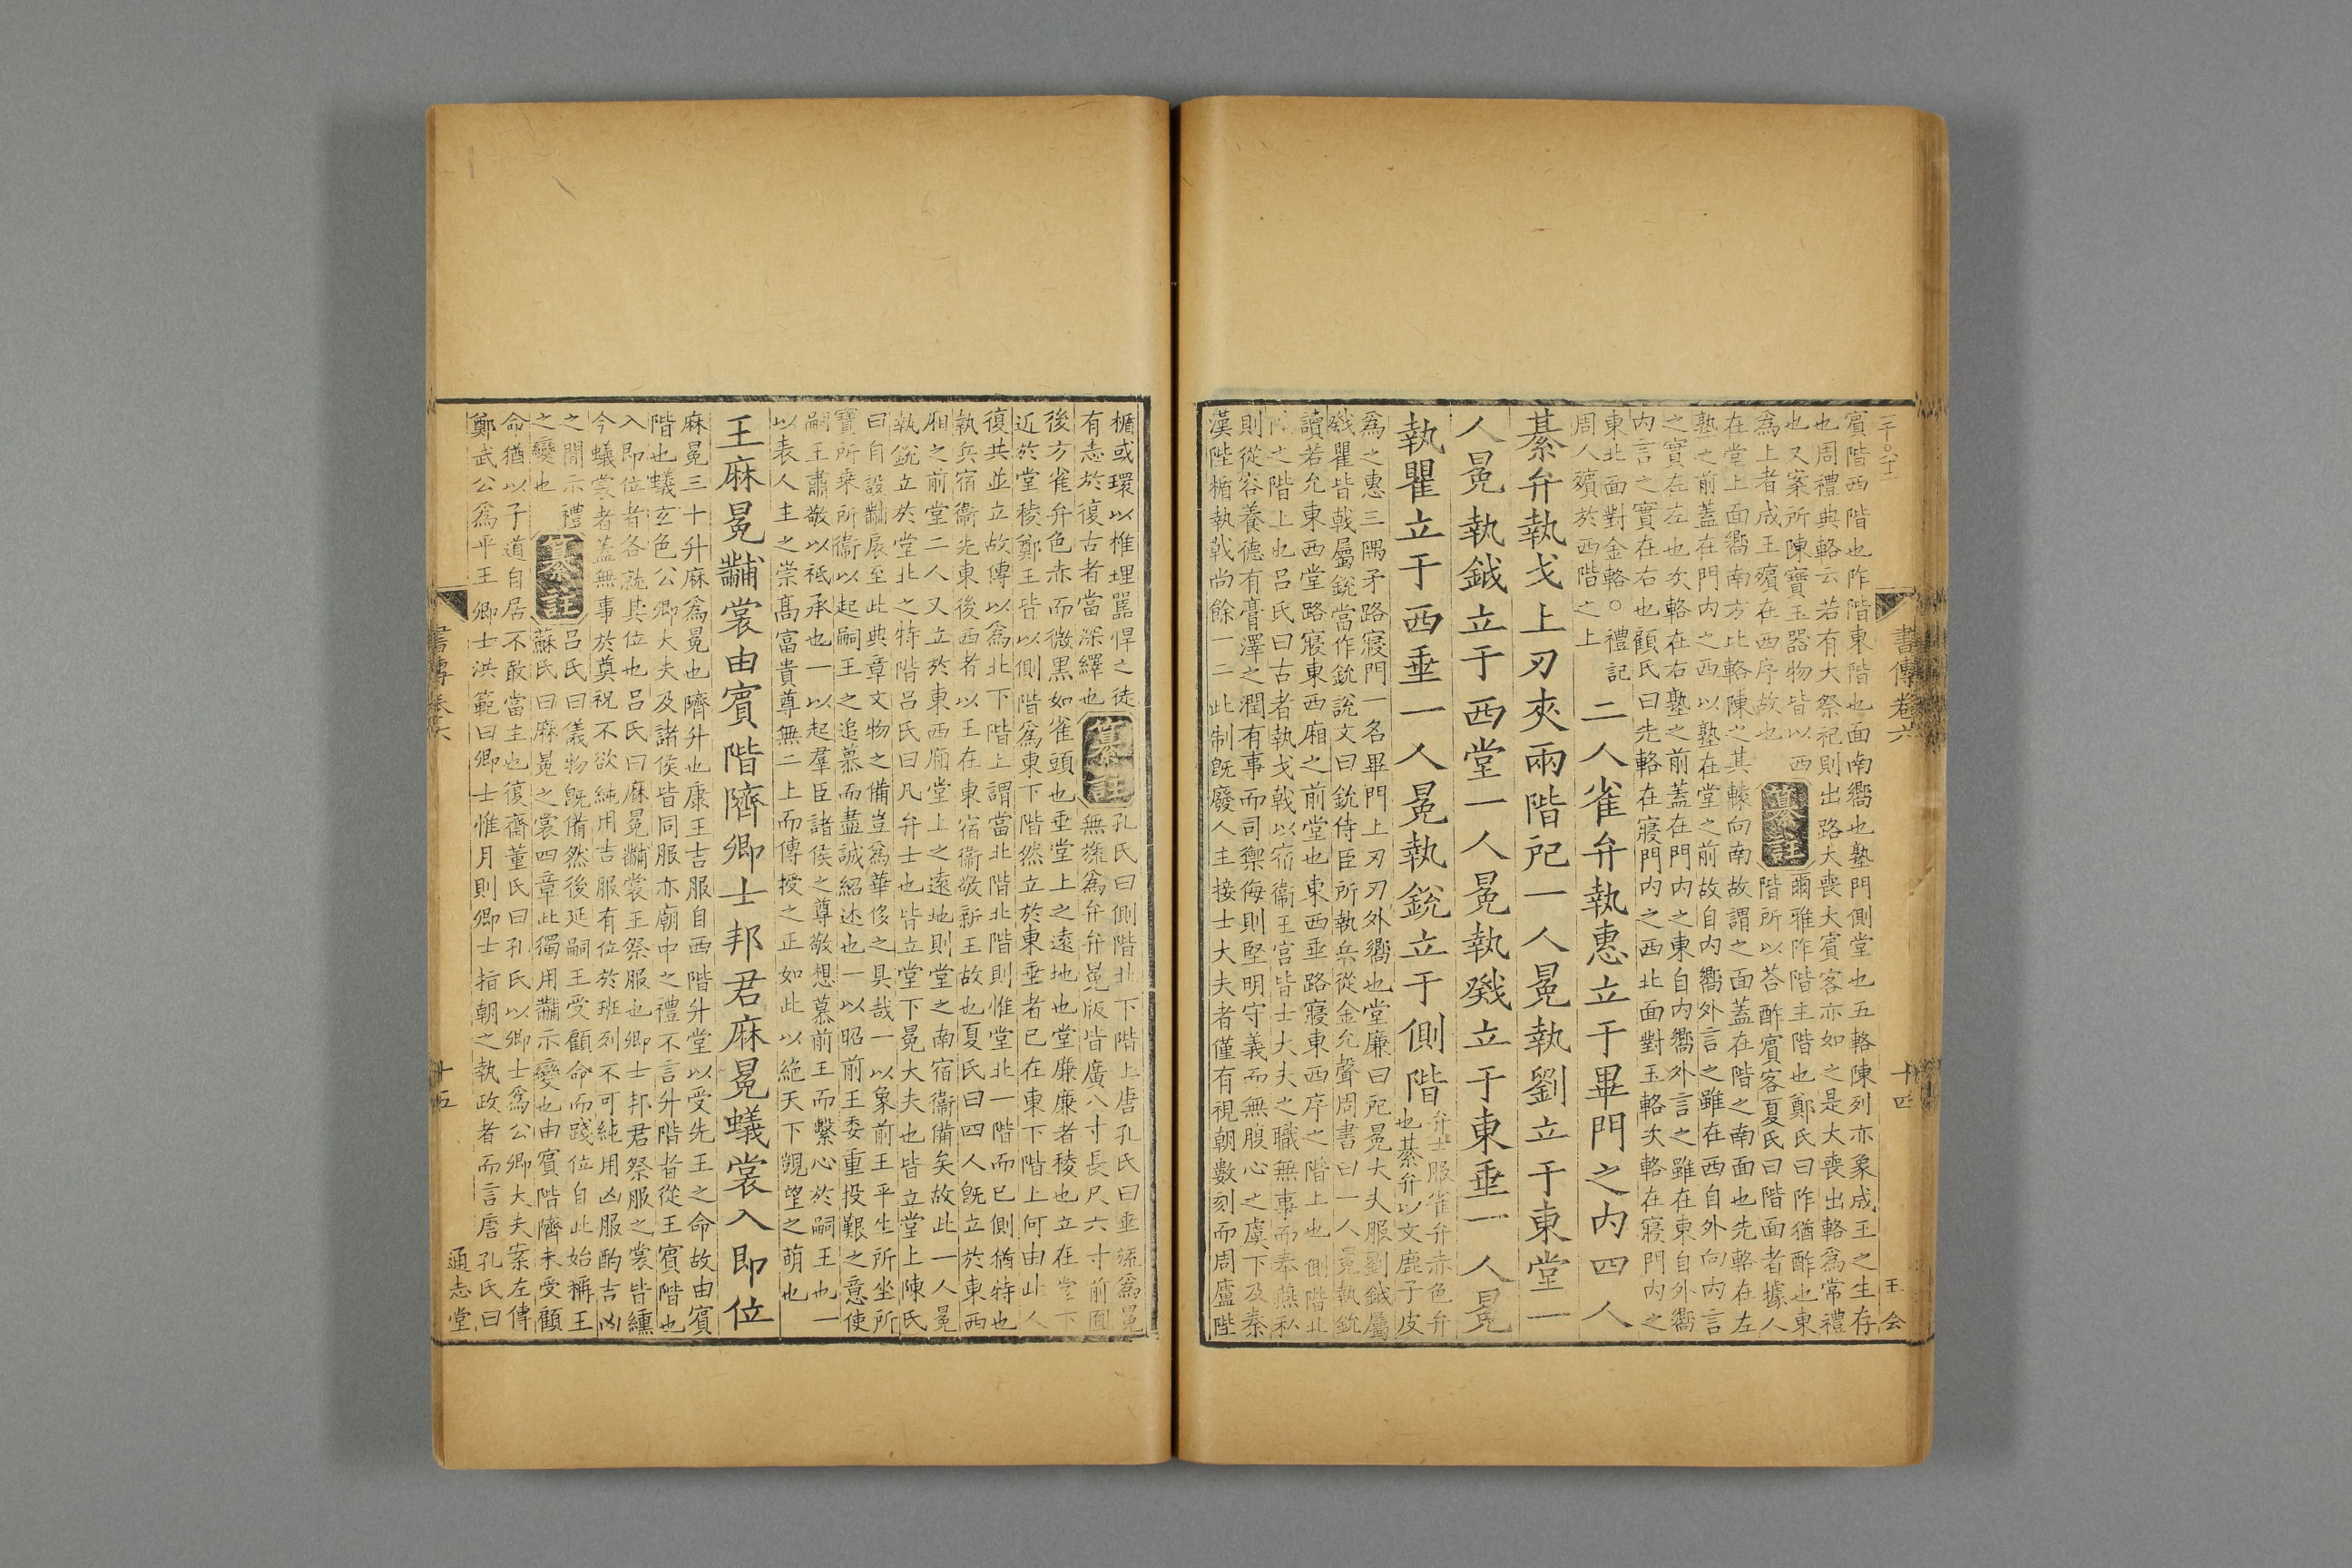 賔階西階也阼階東階也面南嚮也塾門側堂也五輅陳列亦象成王之生存
也周禮典輅云若有大祭祀則出路大喪大賔客亦如之是大喪出輅爲常禮
也又案所陳寶玉器物皆以西
爲上者成王殯在西序故也
纂註
爾雅阼階主階也鄭氏曰阼猶酢也東
階所以荅酢賔客夏氏曰階面者據人
在堂上面嚮南方比輅陳之其轅向南故謂之面蓋在階之南面也先輅在左
塾之前蓋在門内之西以塾在堂之前故自内嚮外言之雖在西自外向内言
之實在左也次輅在右塾之前蓋在門内之東自内嚮外言之雖在東自外嚮
内言之實在右也顧氏曰先輅在寢門内之西北面對玉輅次輅在寢門内之
東北面對金輅○禮記
周人殯於西階之上
二人雀弁執惠立于畢門之内四人
綦弁執戈上刃夾兩階戺一人冕執劉立于東堂一
人冕執鉞立于西堂一人冕執戣立于東垂一人冕
執瞿立于西垂一人冕執銳立于側階
弁士服雀弁赤色弁
也綦弁以文鹿子皮
爲之惠三隅矛路寢門一名畢門上刃刃外嚮也堂廉曰戺冕大夫服劉鉞屬
戣瞿皆戟屬銳當作鈗說文曰鈗侍臣所執兵從金允聲周書曰一人冕執鈗
讀若允東西堂路寢東西廂之前堂也東西垂路寢東西序之階上也側階北
之階上也吕氏曰古者執戈戟以宿衞王宫皆士大夫之職無事而奉燕私
則從容養德有膏澤之潤有事而司禦侮則堅明守義而無腹心之虞下及秦
漢陛楯執戟尚餘一二此制旣廢人主接士大夫者僅有視朝數刻而周廬陛
書傳卷六
十四
楯或環以椎埋嚚悍之徒
有志於復古者當深繹也
纂註
孔氏曰側階北下階上唐孔氏曰垂旒爲冕
無旒爲弁弁冕版皆廣八寸長尺六寸前圓
後方雀弁色赤而微黑如雀頭也垂堂上之遠地也堂廉廉者稜也立在堂下
近於堂稜鄭王皆以側階爲東下階然立於東垂者已在東下階上何由此人
復共並立故傳以爲北下階上謂當北階北階則惟堂北一階而已側猶特也
執兵宿衞先東後西者以王在東宿衞敬新王故也夏氏曰四人旣立於東西
廂之前堂二人又立於東西廂堂上之遠地則堂之南宿衞備矣故此一人冕
執銳立於堂北之特階吕氏曰凡弁士也皆立堂下冕大夫也皆立堂上陳氏
曰自設黼扆至此典章文物之備豈爲華侈之具哉一以象前王平生所坐所
寶所乗所衞以起嗣王之追慕而盡誠紹述也一以昭前王委重投艱之意使
嗣王肅敬以袛承也一以起羣臣諸侯之尊敬想慕前王而繫心於嗣王也一
以表人主之崇髙富貴尊無二上而傳授之正如此以絶天下覬望之萌也
王麻冕黼裳由賔階隮卿士邦君麻冕蟻裳入即位
麻冕三十升麻爲冕也隮升也康王吉服自西階升堂以受先王之命故由賔
階也蟻玄色公卿大夫及諸侯皆同服亦廟中之禮不言升階者從王賔階也
入即位者各就其位也吕氏曰麻冕黼裳王祭服也卿士邦君祭服之裳皆纁
今蟻裳者蓋無事於奠祝不欲純用吉服有位於班列不可純用凶服酌吉凶
之間示禮
之變也
纂註
吕氏曰儀物旣備然後延嗣王受顧命而踐位自此始稱王
蘇氏曰麻冕之裳四章此獨用黼示變也由賔階隮未受顧
命猶以子道自居不敢當主也復齋董氏曰孔氏以卿士爲公卿大夫案左傳
鄭武公爲平王卿士洪範曰卿士惟月則卿士指朝之執政者而言唐孔氏曰
書傳卷六
十五
通志堂